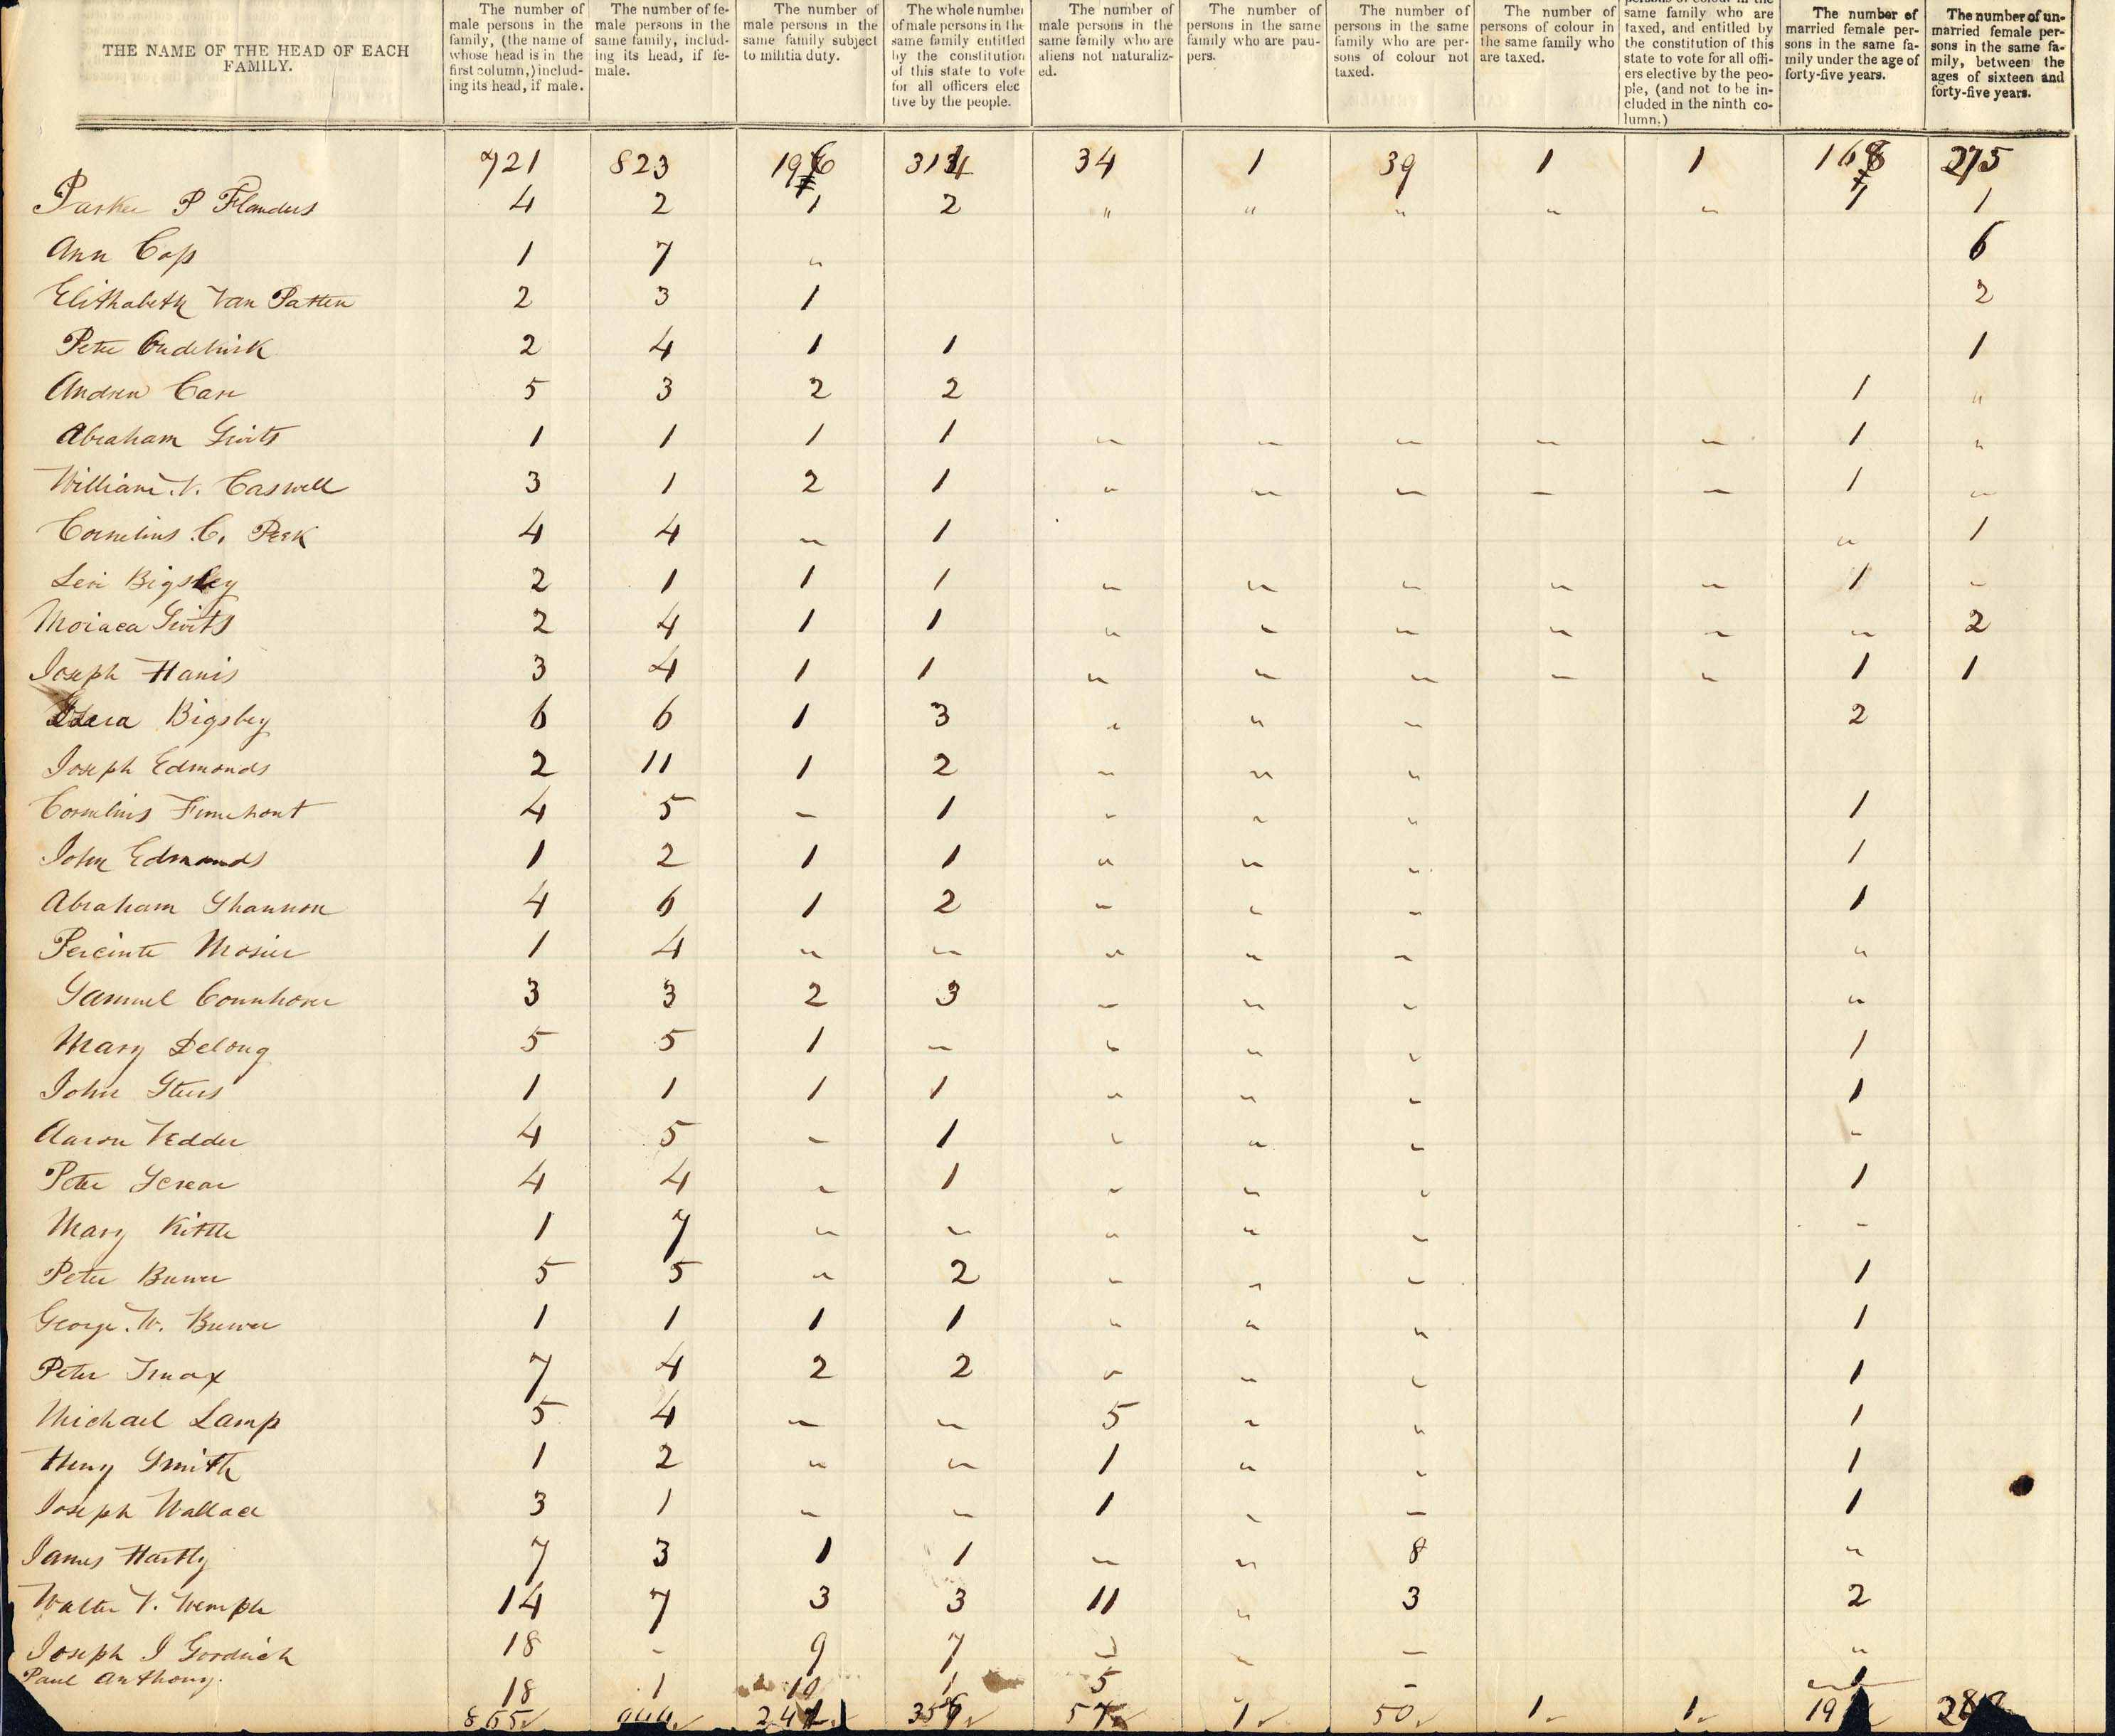 THE NAME OF THE HEAD OF EACH FAMILY.
The number of male persons in the family, (the name of whose head is in the first column,) including its head, if male.
The number of female persons in the same family, including its head, if female.
The number of male persons in the same family subject to militia duty.
The whole number of male persons in the same family entitled by the constitution of this state to vote for all officers elective by the people.
The number of male persons in the same family who are aliens not naturalized.
The number of persons in the same family who are paupers.
The number of persons in the same family who are persons of colour not taxed.
The number of persons of colour in the same family who are taxed.
same family who are taxed, and entitled by the constitution of this state to vote for all officers elective by the people, (and not to be included in the ninth column.)
The number of married female persons in the same family under the age of forty-five years.
The number of unmarried female persons in the same family, between the ages of sixteen and forty-five years.
721 823 196 34 1 39 1 1 168 275
Parker P Flanders 4 2 1 2 " " " " " 1 1
Ann Cass 1 7 " 6
Elithabeth Van Patten 2 3 1 2
Peter Oudekirk 2 4 1 1 1
Andrew Carr 5 3 2 2 1 "
Abraham Swits 1 1 1 1 " " " " " 1 "
William V. Caswell 3 1 2 1 " " " - - 1 "
Cornelius C. Peek 4 4 " 1 " 1
Levi Bigsley 2 1 1 1 " " " " " 1 "
Swits 2 4 1 1 " " " " " " 2
Joseph Harris 3 4 1 1 " " " " " 1 1
Bigsbey 6 6 1 3 " " " 2
Joseph Edmonds 2 11 1 2 " " "
Cornelius 4 5 - 1 " " " 1
John Edmonds 1 2 1 1 " " " 1
Abraham Shannon 4 6 1 2 " " " 1
Mosier 1 4 " " " " " "
Samuel 3 3 2 3 " " " "
Mary Delong 5 5 1 - " " " 1
John Steers 1 1 1 1 " " " 1
Aaron Vedder 4 5 - 1 " " " "
Peter 4 4 " 1 " " " 1
Mary Kittle 1 7 " " " " " -
Peter Brewer 5 5 " 2 " " " 1
George W. Brewer 1 1 1 1 " " " 1
Peter Truax 7 4 2 2 " " " 1
Michael Lamp 5 4 - - 5 " " 1
Henry Smith 1 2 " " 1 " " 1
Joseph Wallace 3 1 " " 1 " - 1
James Hartly 7 3 1 1 - " 8 "
Walter V. Wemple 14 7 3 3 11 " 3 2
Joseph J 18 - 9 7 " - "
Paul Anthony. 18 1 10 1 5 - 1
865 944 1 50 1 1